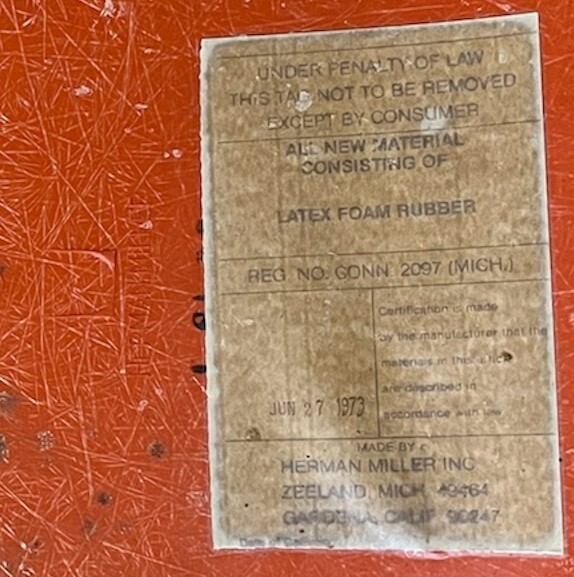 UNDER PENALTY OF LAW
THIS TAG NOT TO BE REMOVED
EXCEPT BY CONSUMER
ALL NEW MATERIAL
CONSISTING OF
LATEX FOAM RUBBER
REG. NO. CONN. 2097 (MICH.)
Certification is made
by the manufacturer that the
materials in this article
are described in
accordance with law
JUN 27 1973
MADE BY
HERMAN MILLER INC
ZEELAND, MICH 49464
GARDENA, CALIF 90247
Date of Delivery
HERMAN MILLER